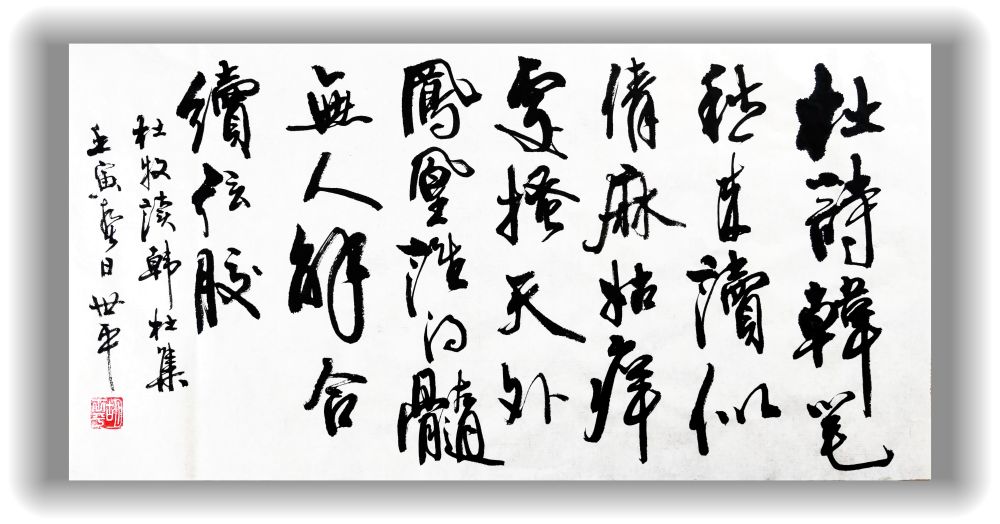 杜詩韓笔
愁来讀似
倩麻姑痒
處搔天外
鳳凰誰得髓
無人解合
續弦胶
杜牧读韩杜集
壬寅春日 世平